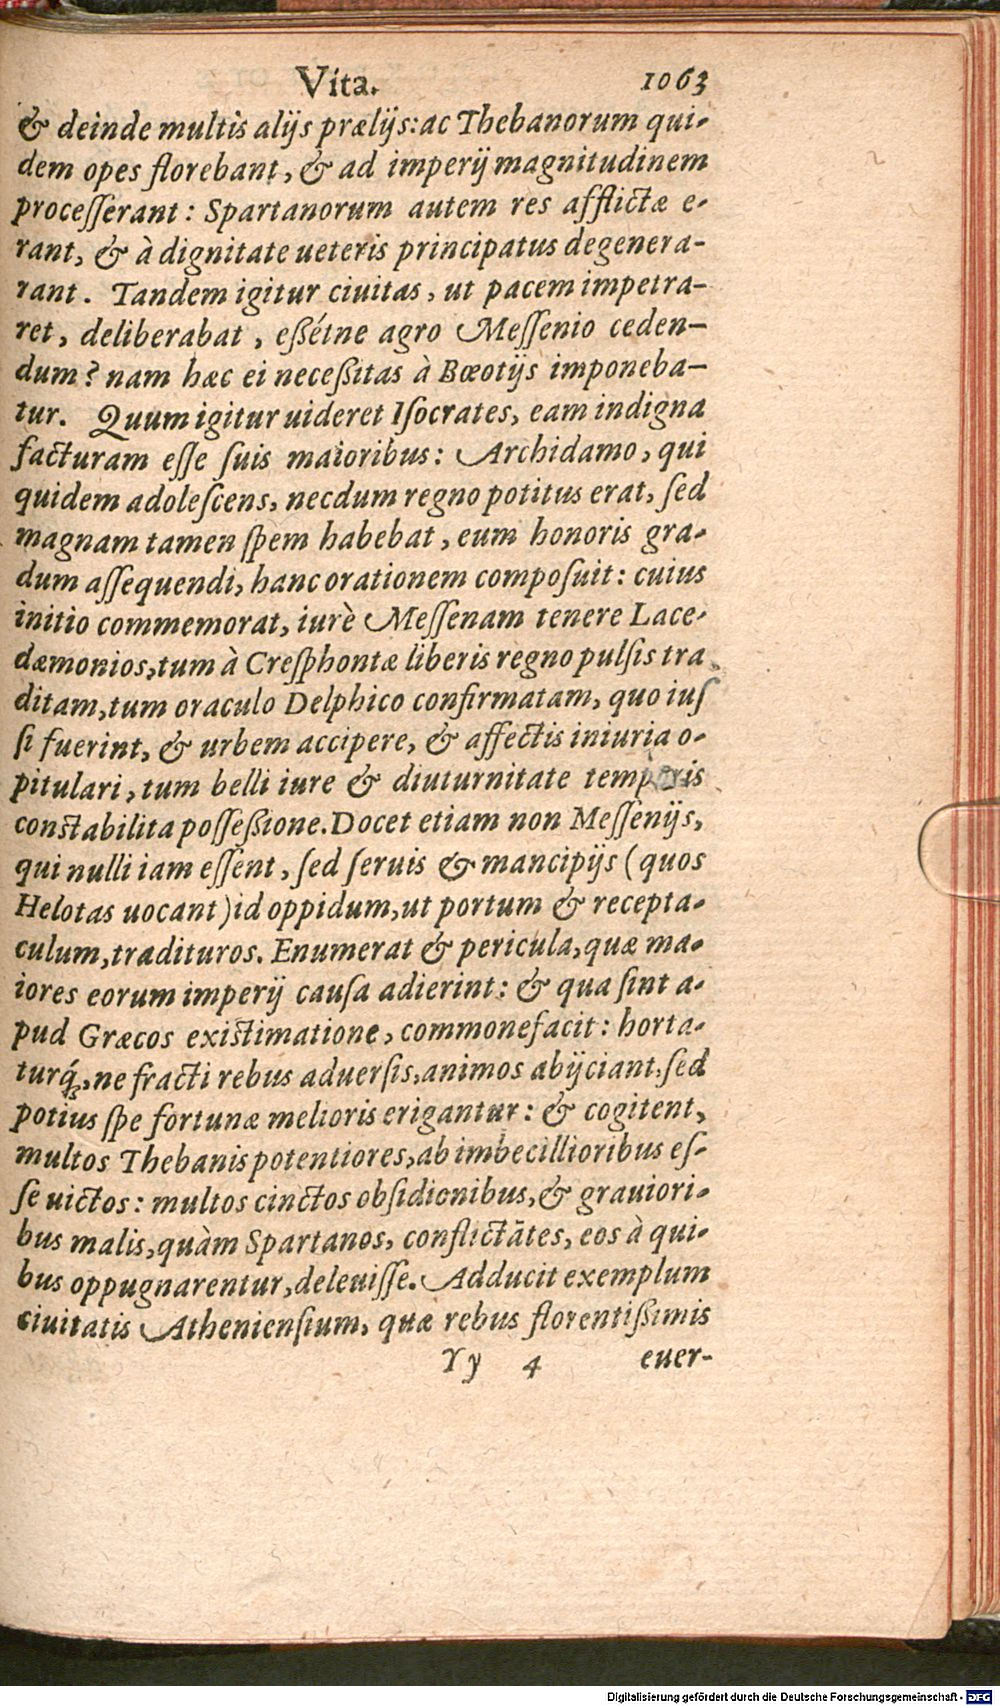 Vita. 1063
& deinde multis alijs prælijs: ac Thebanorum qui-
dem opes florebant, & ad imperij magnitudinem
proceſſerant: Spartanorum autem res afflictæ e-
rant, & à dignitate ueteris principatus degenera-
rant. Tandem igitur ciuitas, ut pacem impetra-
ret, deliberabat, eßétne agro Meſſenio ceden-
dum? nam hæc ei neceßitas à Bœotijs imponeba-
tur. Quum igitur uideret Iſocrates, eam indigna
facturam eſſe ſuis maioribus: Archidamo, qui
quidem adoleſcens, necdum regno potitus erat, ſed
magnam tamen ſpem habebat, eum honoris gra-
dum aſſequendi, hanc orationem compoſuit: cuius
initio commemorat, iurè Meſſenam tenere Lace-
dæmonios, tum à Creſphontæ liberis regno pulſis tra
ditam, tum oraculo Delphico confirmatam, quo iuſ
ſi fuerint, & urbem accipere, & affectis iniuria o-
pitulari, tum belli iure & diuturnitate temporis
conſtabilita poſſeßione. Docet etiam non Meſſenijs,
qui nulli iam eſſent, ſed ſeruis & mancipijs (quos
Helotas uocant) id oppidum, ut portum & recepta-
culum, tradituros. Enumerat & pericula, quæ ma-
iores eorum imperij cauſa adierint: & qua ſint a-
pud Græcos exiſtimatione, commonefacit: horta-
turq́;, ne fracti rebus aduerſis, animos abijciant, ſed
potius ſpe fortunæ melioris erigantur: & cogitent,
multos Thebanis potentiores, ab imbecillioribus eſ-
ſe uictos: multos cinctos obſidionibus, & grauiori-
bus malis, quàm Spartanos, conflictātes, eos à qui-
bus oppugnarentur, deleuiſſe. Adducit exemplum
ciuitatis Athenienſium, quæ rebus florentißimis
Yy 4 euer-
Digitalisierung gefördert durch die Deutsche Forschungsgemeinschaft - DFG